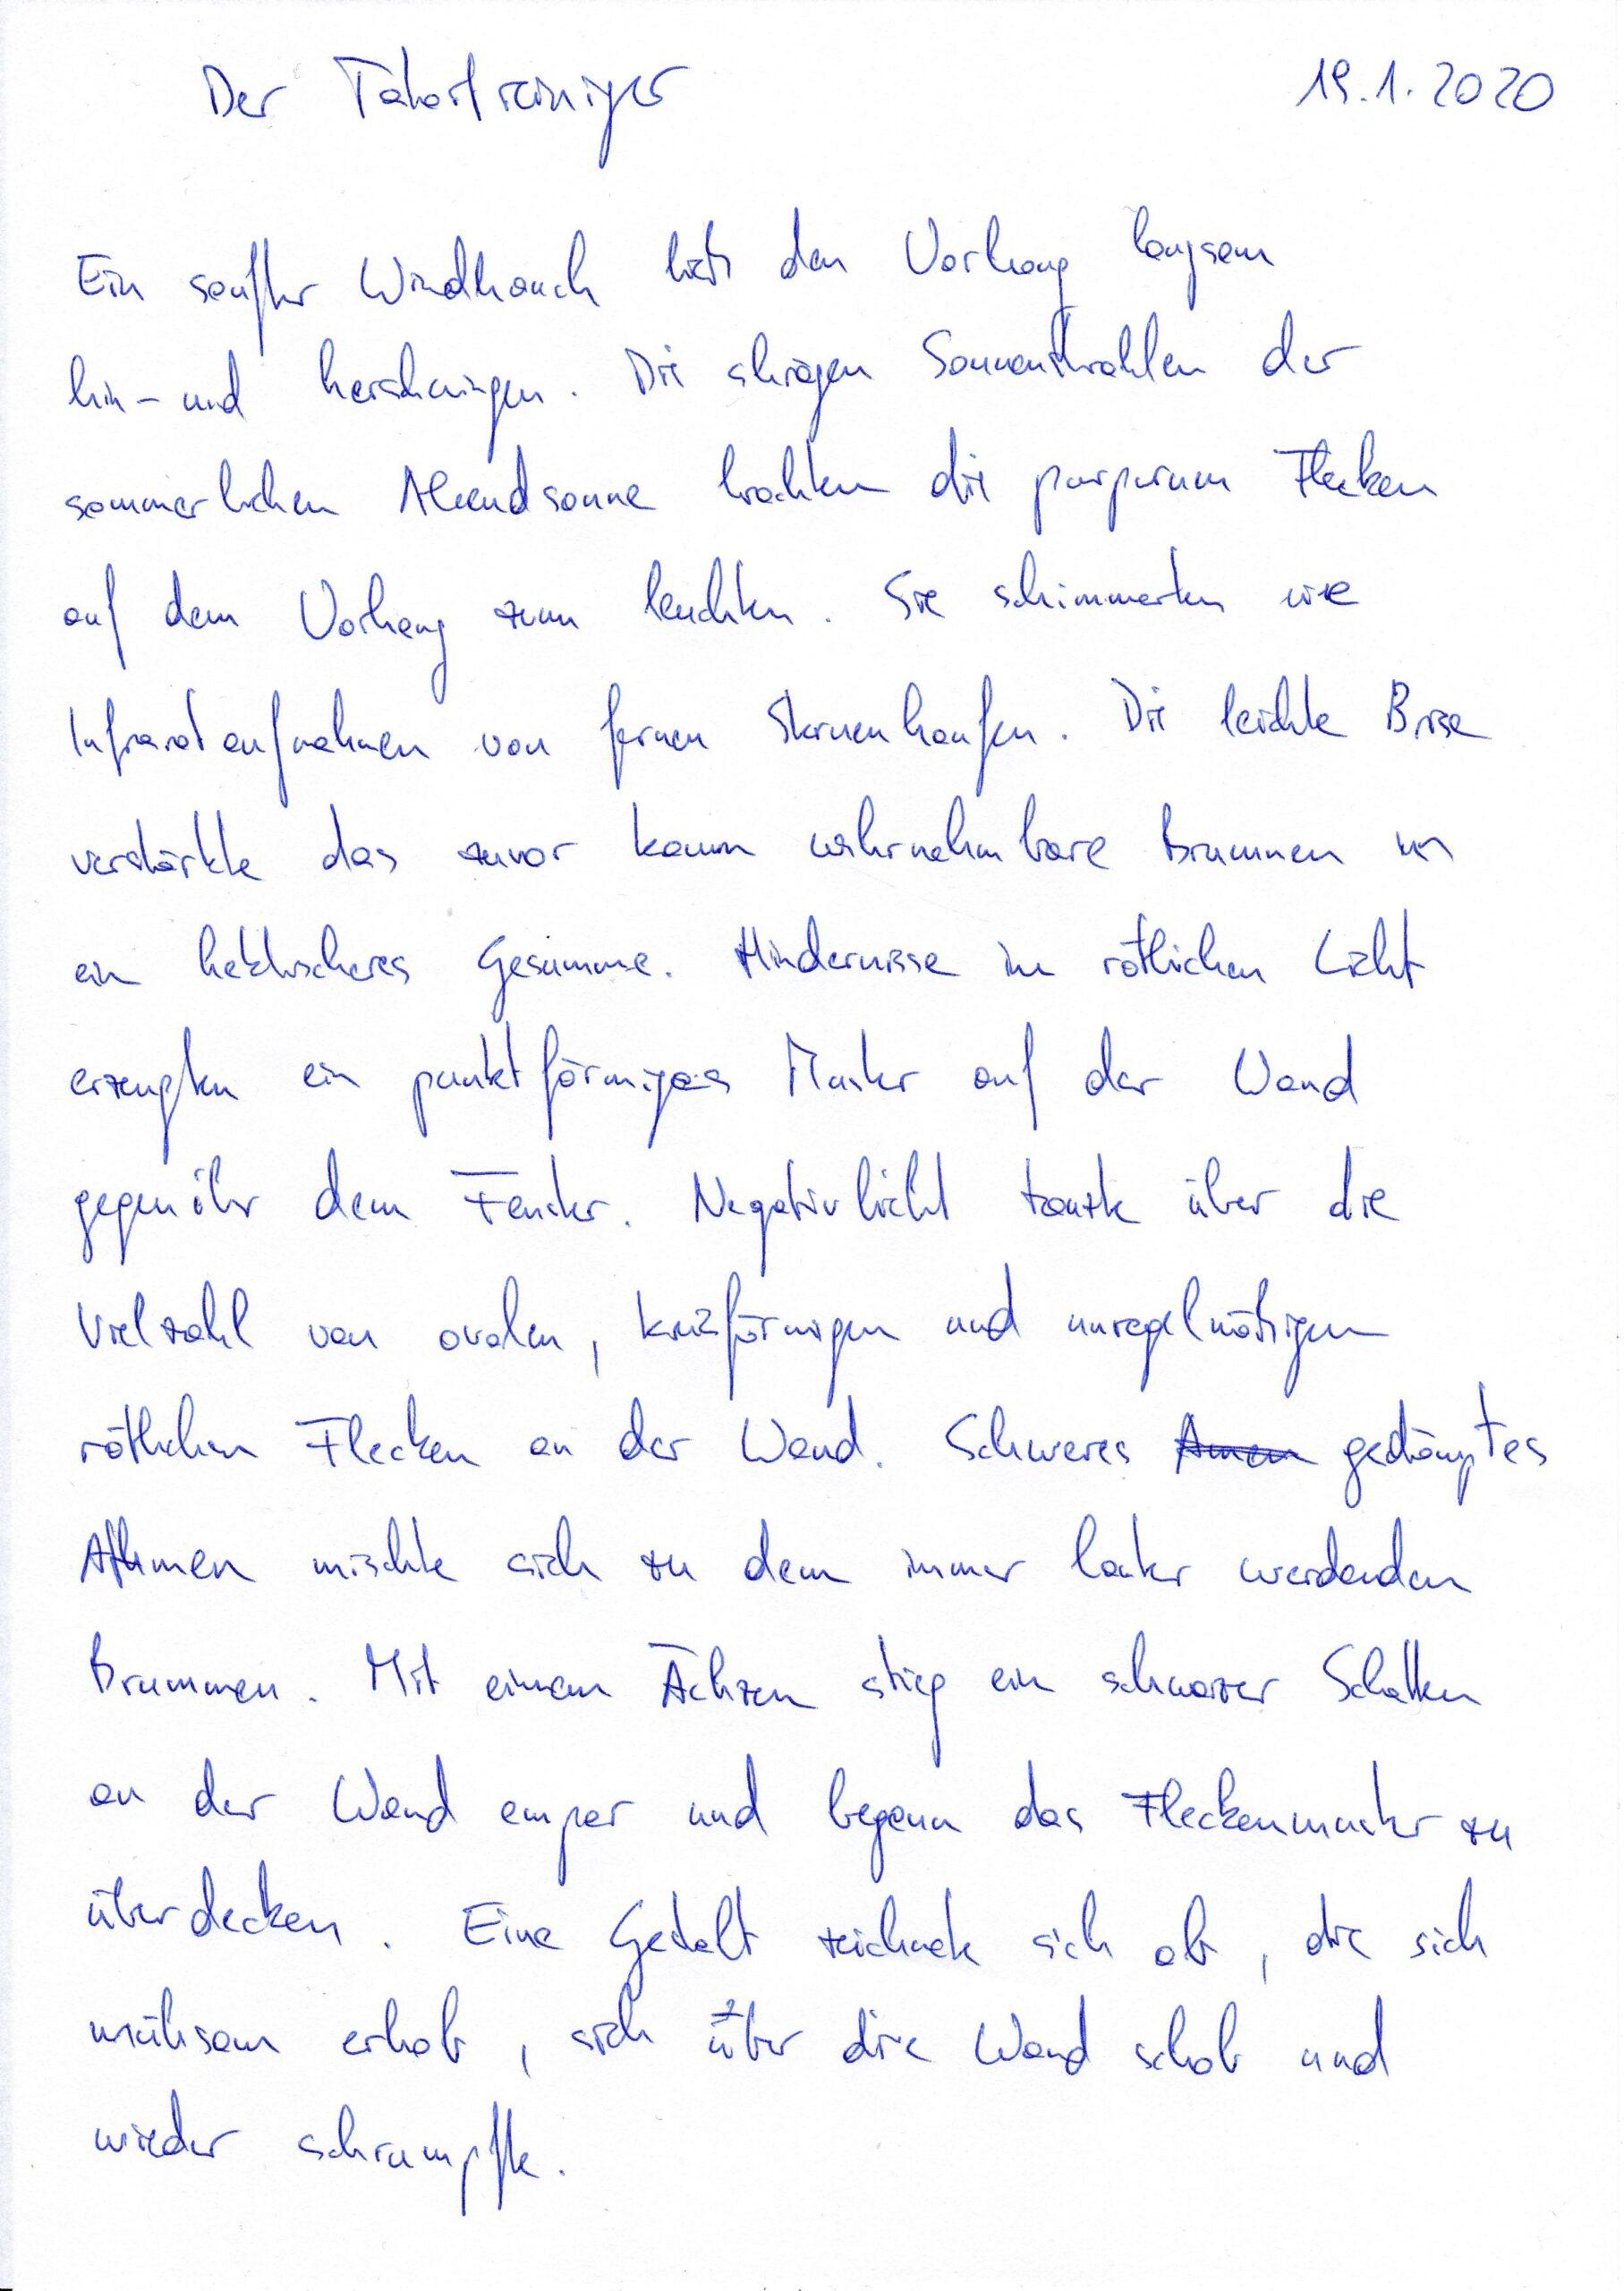 Der Tatortreiniger 19.1.2020
Ein sanfter Windhauch ließ den Vorhang langsam
hin- und herschwingen. Die schrägen Sonnenstrahlen der
sommerlichen Abendsonne brachten die purpurnen Flecken
auf dem Vorhang zum leuchten. Sie schimmerten wie
Infrarotaufnahmen von fernen Sternenhaufen. Die leichte Brise
verstärkte das zuvor kaum wahrnehmbare Brummen in
ein hektischeres Gesumme. Hindernisse im rötlichen Licht
erzeugten ein punktförmiges Muster auf der Wand
gegenüber dem Fenster. Negativlicht tanzte über die
Vielzahl von ovalen, kreisförmigen und unregelmäßigen
rötlichen Flecken an der Wand. Schweres gedämpftes
Athmen mischte sich zu dem immer lauter werdenden
Brummen. Mit einem Ächzen stieg ein schwarzer Schatten
an der Wand empor und begann das Fleckenmuster zu
überdecken. Eine Gestalt zeichnete sich ab, die sich
mühsam erhob, sich über die Wand schob und
wieder schrumpfte.